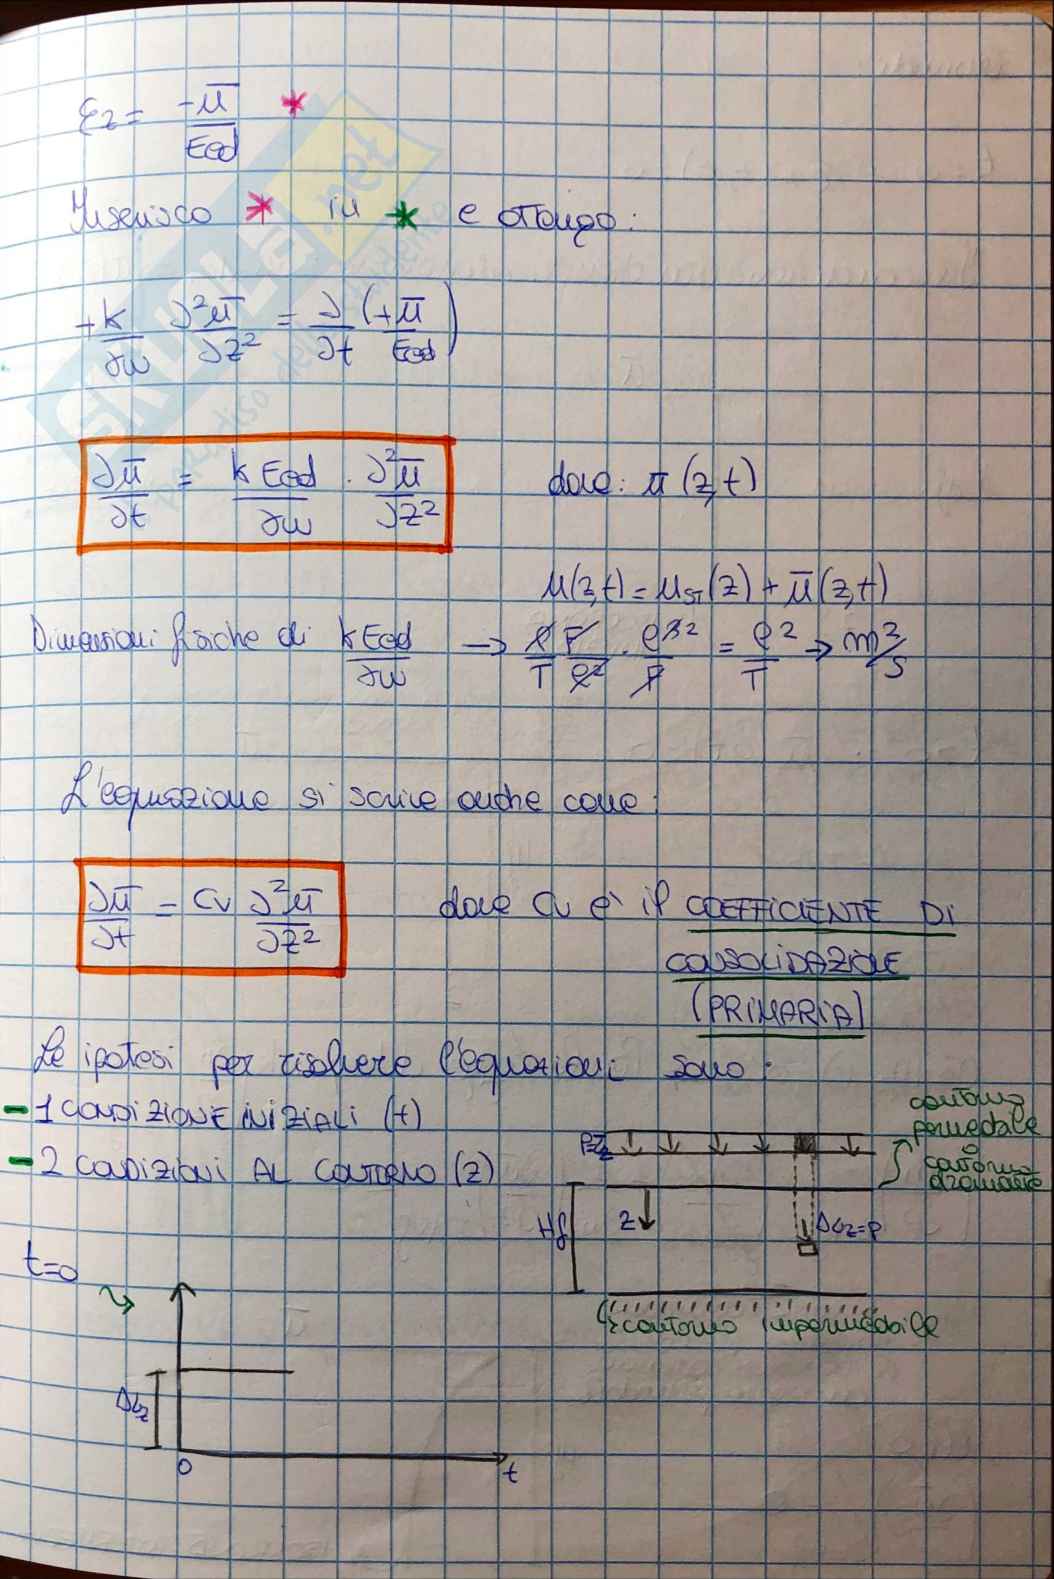 εz = -ū/Eed *
Inserisco * in * e ottengo:
+k/γw ∂²ū/∂z² = ∂/∂t (+ū/Eed)
∂ū/∂t = k Eed/γw · ∂²ū/∂z² dove: ū (z,t)
u(z,t) = uST(z) + ū(z,t)
Dimensioni fisiche di kEed/γw → ℓ/T F/ℓ² · ℓ³/F = ℓ²/T → m²/s
L'equazione si scrive anche come:
∂ū/∂t = Cv ∂²ū/∂z² dove Cv è il COEFFICIENTE DI
CONSOLIDAZIONE
(PRIMARIA)
Le ipotesi per risolvere l'equazioni sono:
- 1 CONDIZIONE INIZIALI (t)
- 2 CONDIZIONI AL CONTORNO (z)
contorno
permeabile
o
contorno
drenante
z
Δσz=p
Hf
contorno impermeabile
t=0
Δσz
0
t
SKUOLA.net